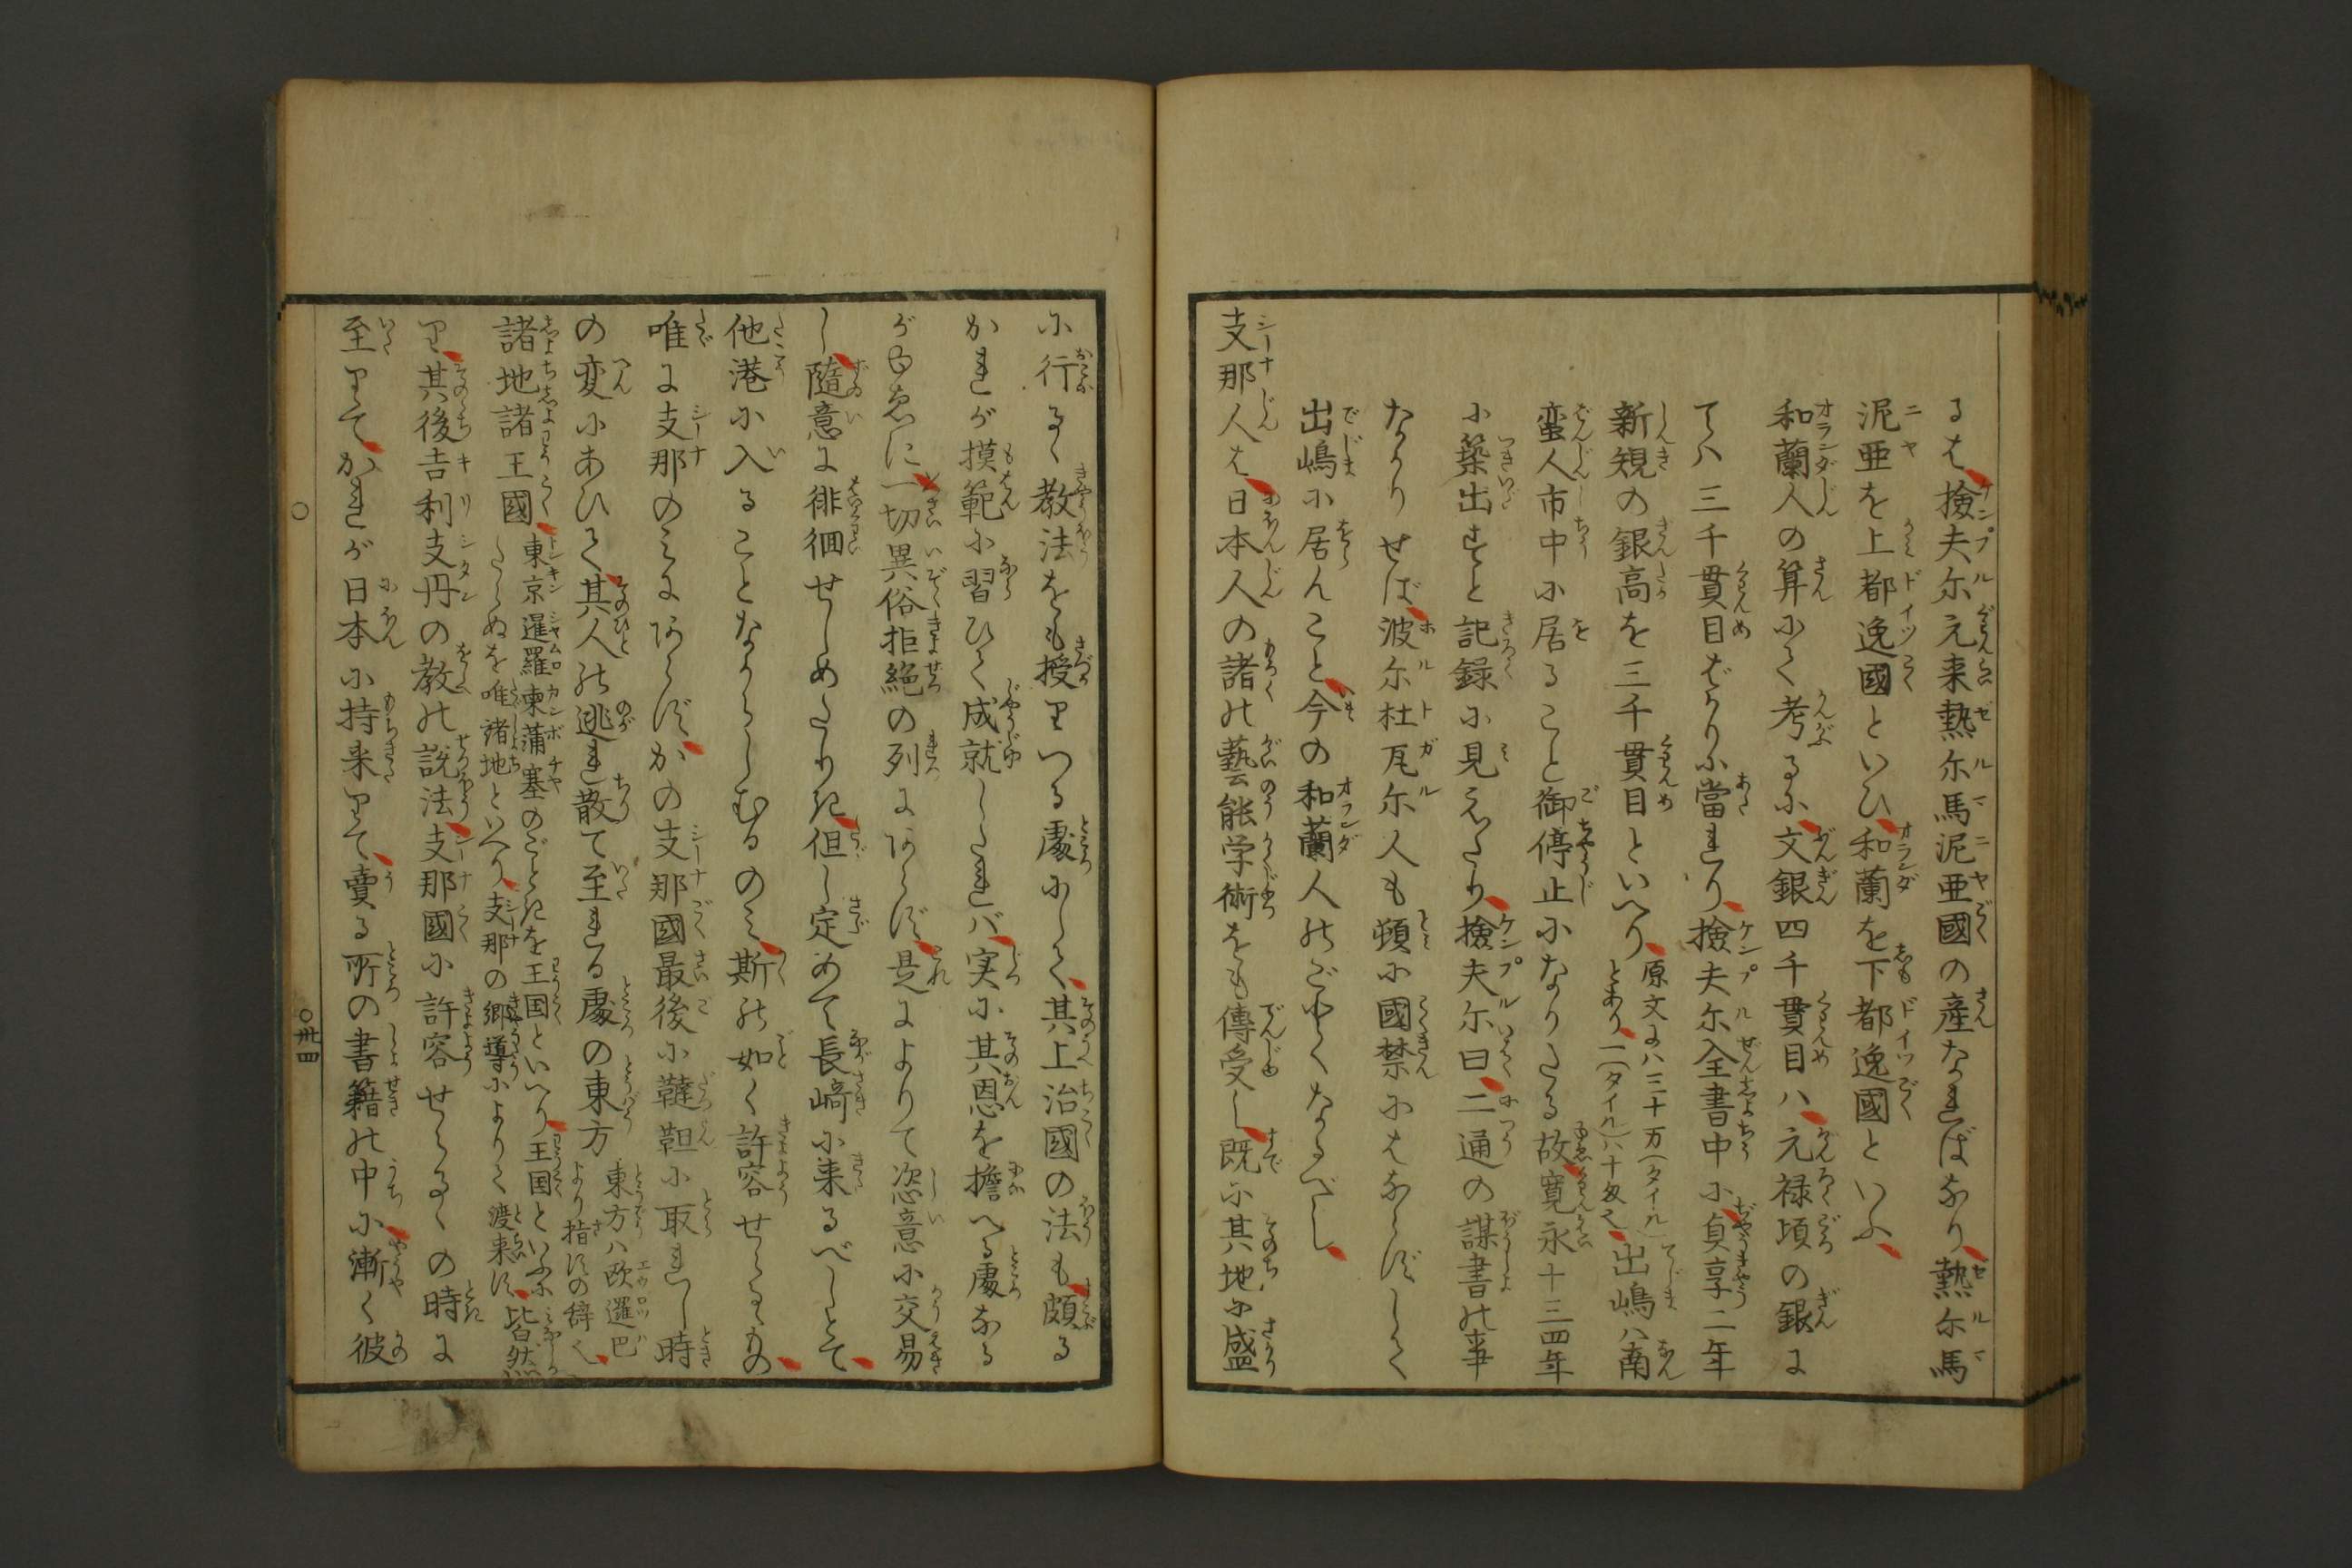 るは、撿夫尓元来熱尓馬泥亜國の産なればなり、熱尓馬
泥亜を上都逸國といひ、和蘭を下都逸國といふ、
和蘭人の算にて考るに、文銀四千貫目ハ、元禄頃の銀に
てハ三千貫目ばかりに當れり、撿夫尓全書中に、貞享二年
新規の銀高を三千貫目といへり、原文にハ三十万(タイル)
とあり、一(タイル)ハ十匁也、出嶋ハ南
蛮人市中に居ること御停止になりたる故、寛永十三四年
に築出すと記録に見えたり、撿夫尓曰、二通の謀書の事
なかりせば、波尓杜瓦尓人も頓に國禁にはあらずして
出嶋に居んこと、今の和蘭人のごとくなるべし、
支那人は、日本人の諸の藝能学術をも傳受し、既に其地に盛
に行るゝ教法をも授りつる處にして、其上治國の法も、頗る
かれが摸範に習ひて成就したれバ、実に其恩を擔へる處なる
がゆゑに、一切異俗拒絶の列にあらず、是によりて恣意に交易
し、随意に徘徊せしめたりき、但し定めて長﨑に来るべしとて、
他港に入ることなからしむるのミ、斯の如く許容せらるゝもの、
唯に支那のミにあらず、かの支那國最後に韃靼に取れし時
の変にあひて、其人の逃れ散て至れる處の東方 東方ハ欧邏巴
より指すの辞也、
諸地諸王國、東京暹羅柬蒲塞のごときを王国といへり、王国といふに
たらぬを唯諸地といへり、支那の郷導によりて渡来す、皆然
り、其後吉利支丹の教の説法、支那國に許容せらるゝの時に
至りて、かれが日本に持来りて、賣る所の書籍の中に、漸く彼
〇卅四